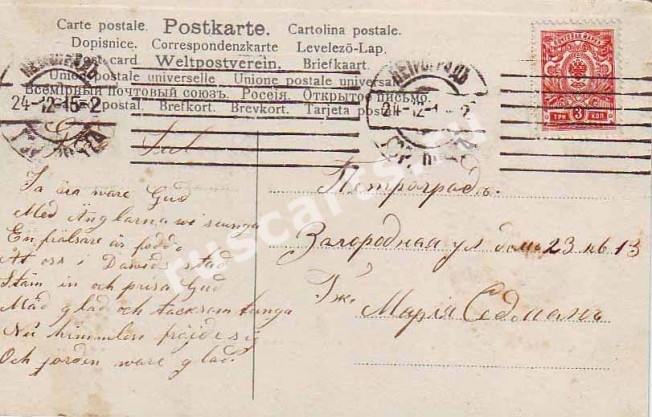 Carte postale. Postkarte. Cartolina postale.
Dopisnice. Correspondenzkarte Levelező-Lap.
Post-card Weltpostverein. Briefkaart.
Union postale universelle. Unione postale universale
Всемірный почтовый союзъ. Россія. Открытое письмо.
postal. Brefkort. Brevkort. Tarjeta postal
ПЕТРОГРАДЪ
24-12-15-2
ПЕТРОГРАДЪ
24-12-1 -2
ПОЧТОВАЯ МАРКА
3
ТРИ КОП
God Jul
Ja ära ware Gud
Med Änglarna wi siunga
En frälsare är född
At oss i Davids stad
Stäm in och prisa Gud
Måd glad och tacksam tunga
Nu himmelen fröjde sig
Och jorden ware glad.
Петроградъ.
Загородная ул домъ 23 кв 13
Гж.
Марія Седмана
ruscarts.ru